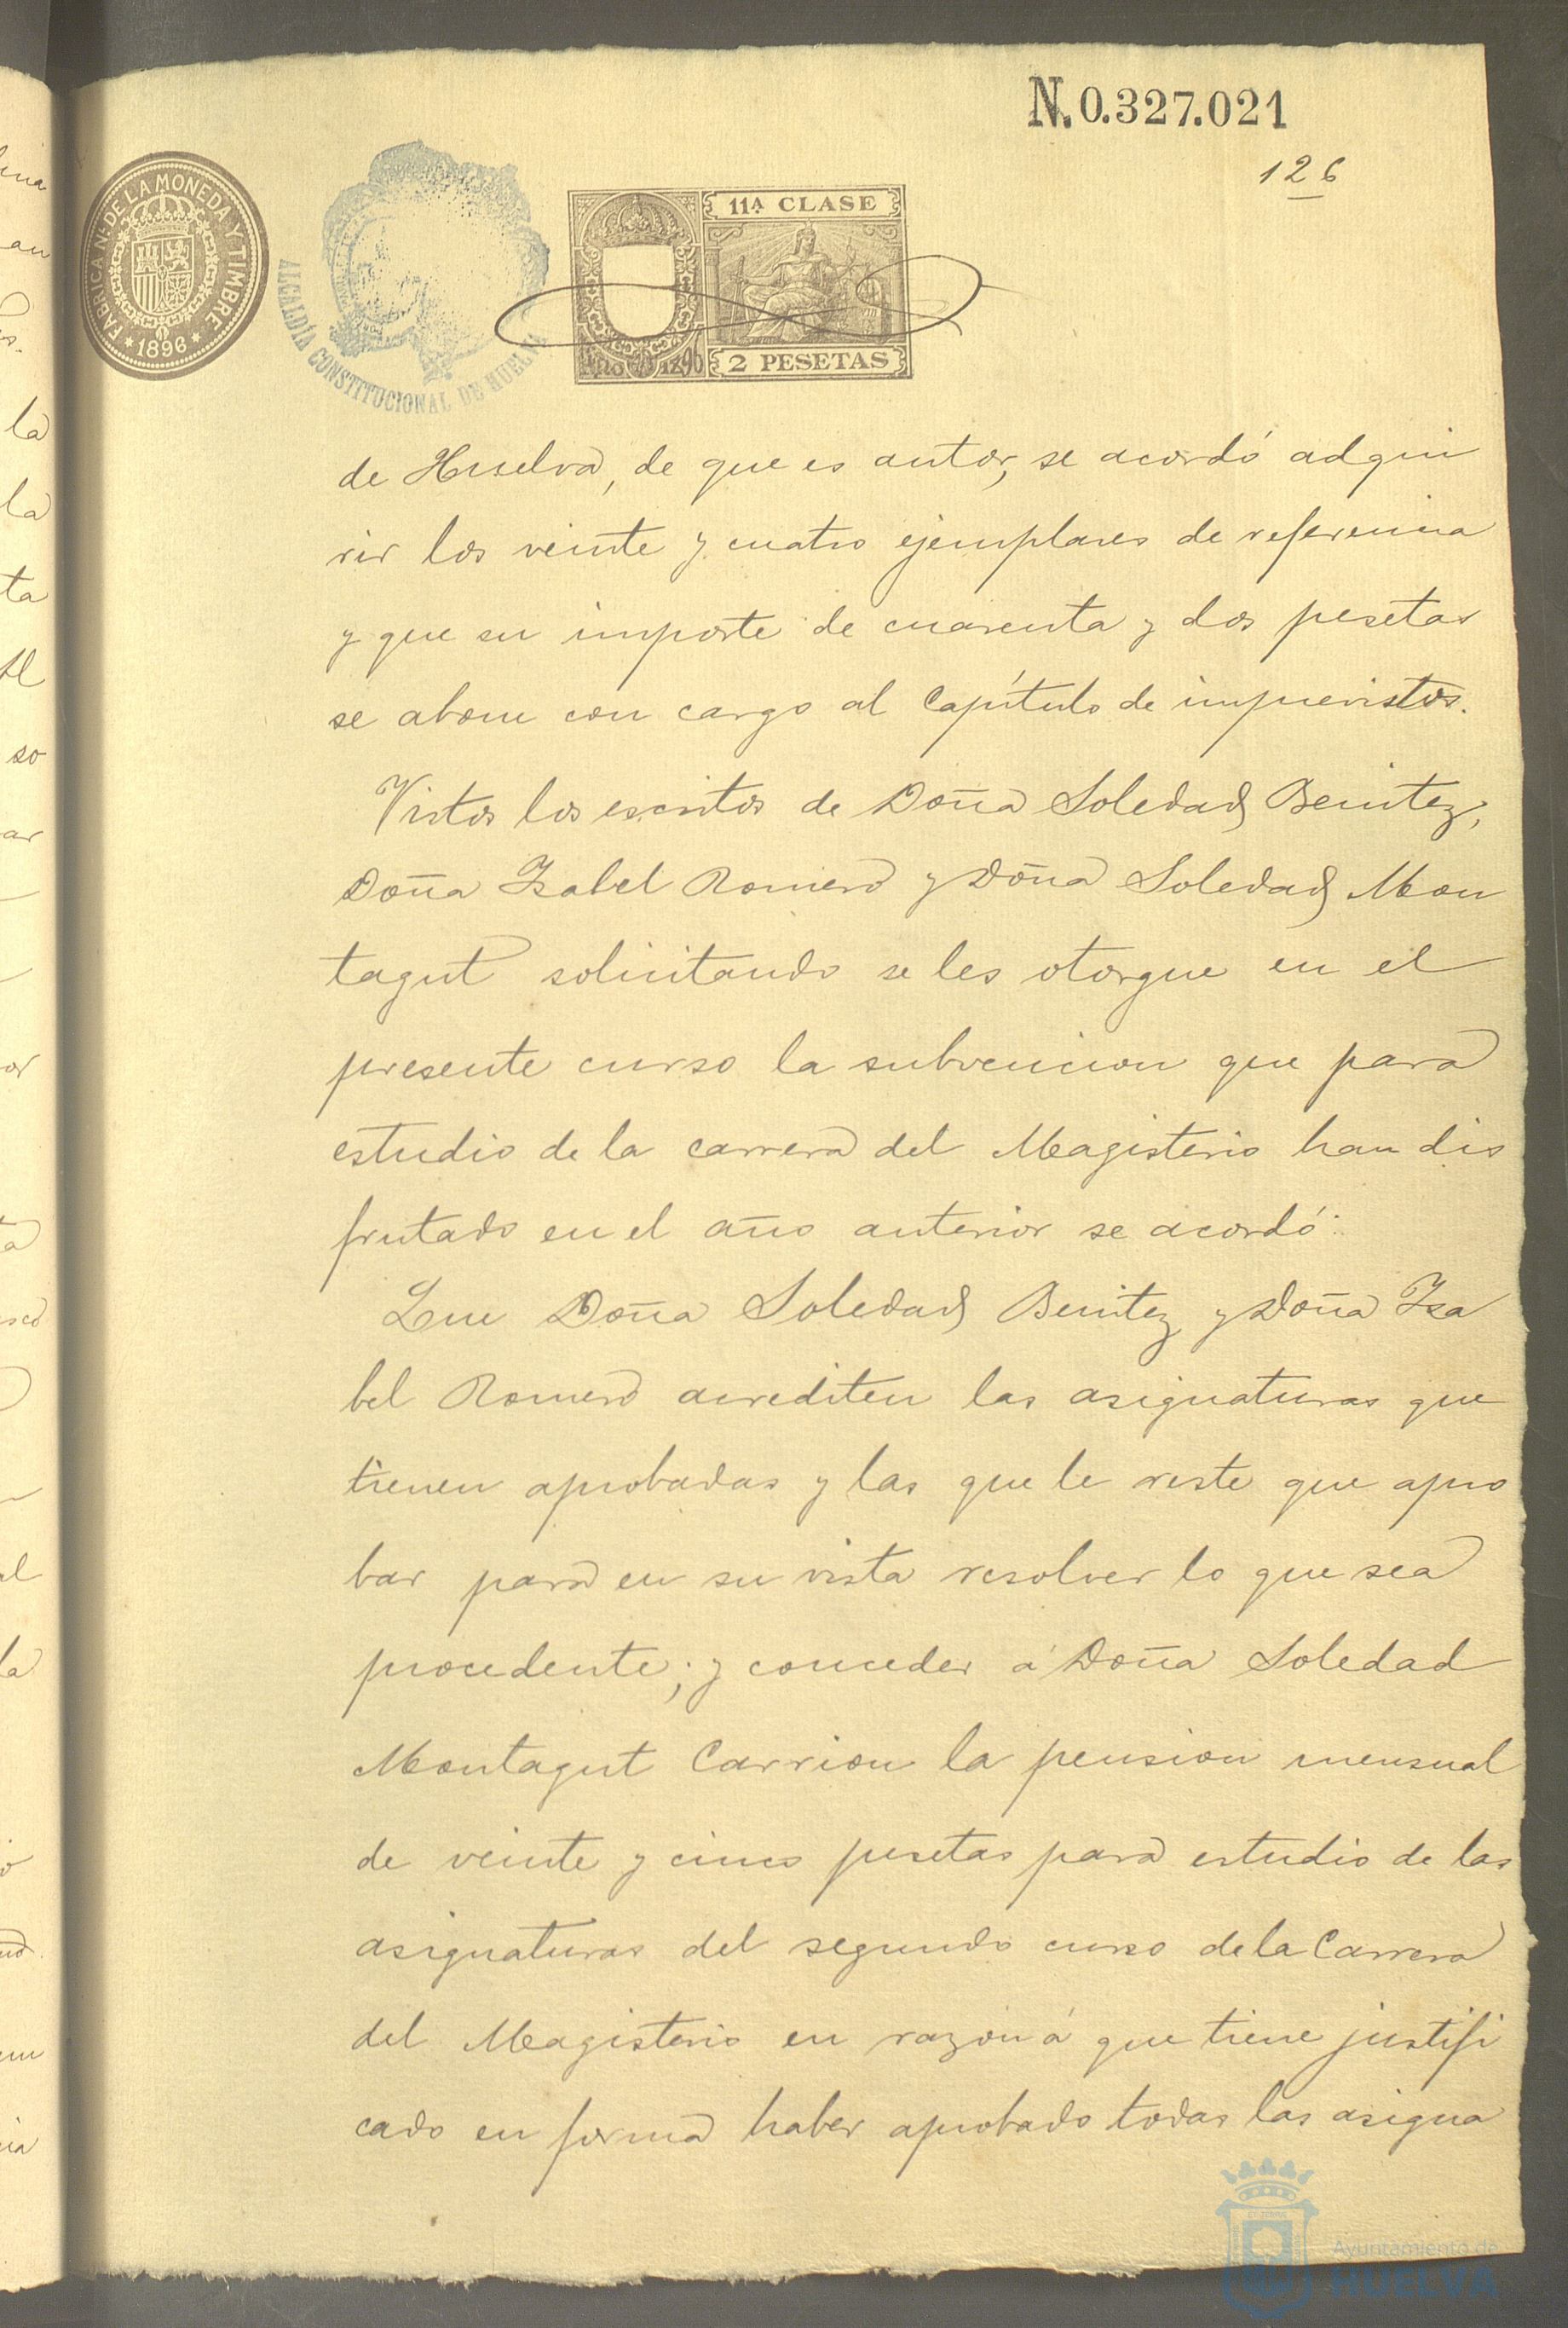 N. 0.327.021
126
FABRICA Nal DE LA MONEDA Y TIMBRE
1896
ALCALDÍA CONSTITUCIONAL DE HUELVA
11ª CLASE
AÑO 1896
2 PESETAS
de Huelva, de que es autor, se acordó adqui
rir los veinte y cuatro ejemplares de referencia
y que su importe de cuarenta y dos pesetas
se abone con cargo al Capítulo de imprevistos.
Vistos los escritos de Doña Soledad Benitez,
Doña Isabel Romero y Doña Soledad Mon
tagut solicitando se les otorgue en el
presente curso la subvencion que para
estudio de la carrera del Magisterio han dis
frutado en el año anterior se acordó:
Que Doña Soledad Benitez y Doña Isa
bel Romero acrediten las asignaturas que
tienen aprobadas y las que le reste que apro
bar para en su vista resolver lo que sea
procedente; y conceder á Doña Soledad
Montagut Carrion la pension mensual
de veinte y cinco pesetas para estudio de las
asignaturas del segundo curso de la Carrera
del Magisterio en razon á que tiene justifi
cado en forma haber aprobado todas las asigna
Ayuntamiento de
HUELVA